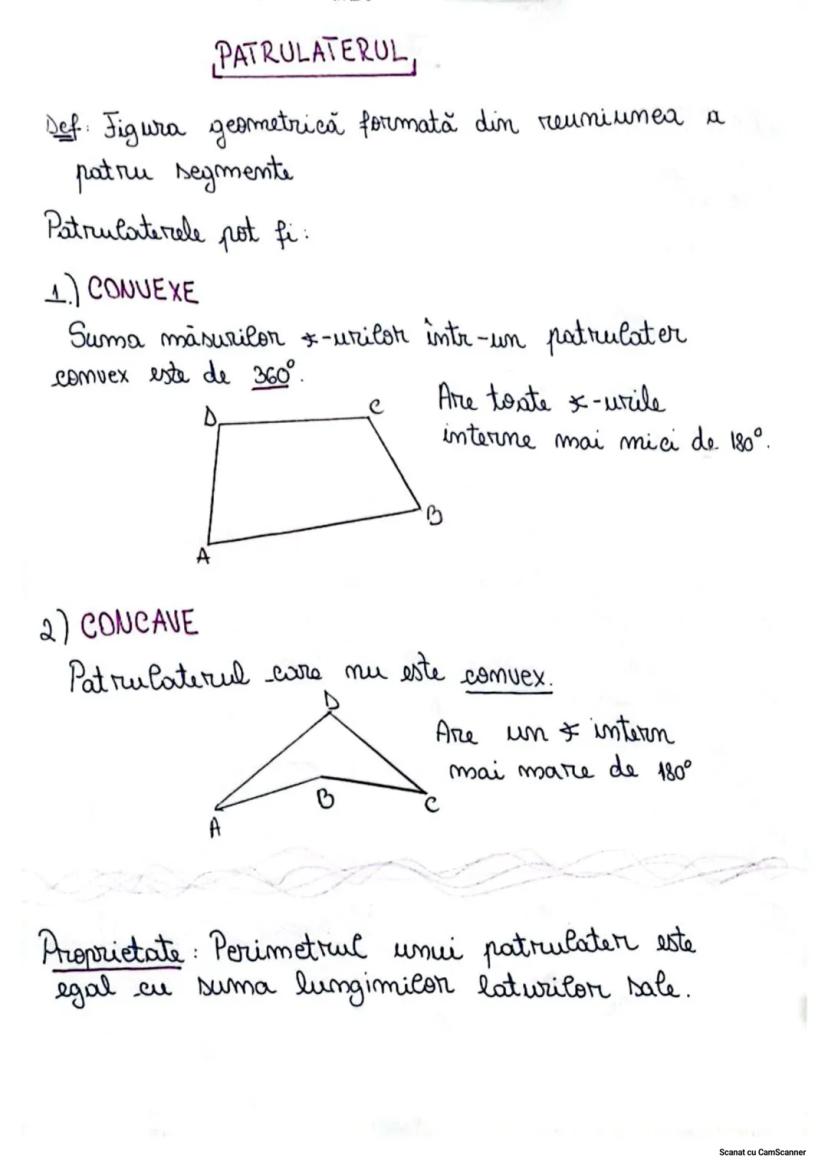 PATRULATERUL
Def: Figura geometrică formată din reuniunea a
patru segmente
Patrulaterele pot fi:
1.) CONVEXE
Suma măsurilor ∡-urilor într-un patrulater
convex este de 360°.
Are toate ∡-urile
interne mai mici de 180°.
D
C
B
A
2) CONCAVE
Patrulaterul care nu este convex.
D
Are un ∡ intern
mai mare de 180°
B
C
A
Proprietate: Perimetrul unui patrulater este
egal cu suma lungimilor laturilor sale.
Scanat cu CamScanner